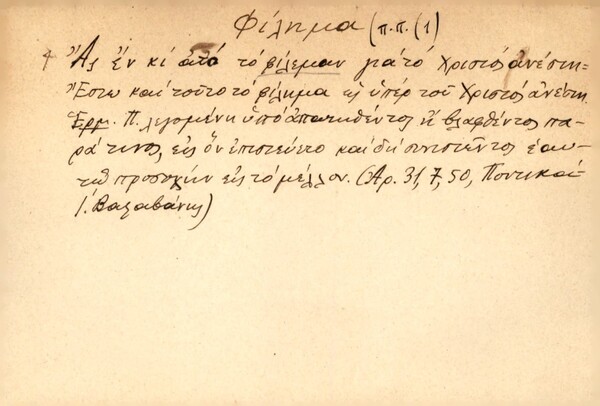 Φίλημα (π.π. (1)
Ἂς ἔν κι ἀτὸ τὸ φίλεμαν γιὰ τὸ Χριστὸς ἀνέστη=
Ἔστω καὶ τοῦτο τὸ φίλημα ὡς ὑπὲρ τοῦ Χριστὸς ἀνέστη.
Ἑρμ. Π. λεγομένη ὑπὸ ἀπατηθέντος ἢ βλαφθέντος πα-
ρά τινος, εἰς ὃν ἐπιστεύετο καὶ δὴ συνιστῶντος ἑαυ-
τῷ προσοχὴν εἰς τὸ μέλλον. (Αρ. 31, 7, 50, Ποντικαί-
Ι. Βαλαβάνης)